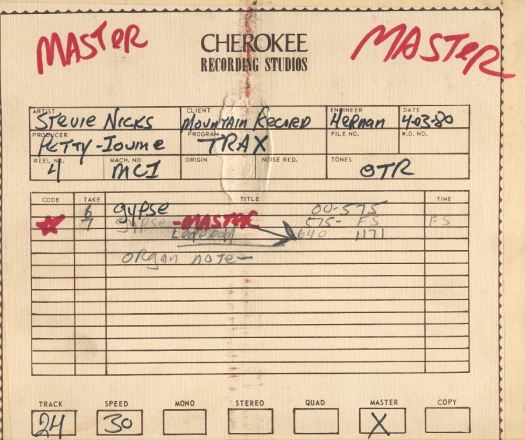 MASTER CHEROKEE MASTER
RECORDING STUDIOS
ARTIST CLIENT ENGINEER DATE
STEVIE NICKS MOUNTAIN RECORD HERMAN 4-03-80
PRODUCER PROGRAM FILE NO. W.O. NO.
PETTY-IOVINE TRAX
REEL NO. MACH. NO ORIGIN NOISE RED. TONES
4 MCI OTR
CODE TAKE TITLE TIME
6 gypse 00-575
7 gypse -MASTER 575- FS FS
640 1171
organ note-
TRACK SPEED MONO STEREO QUAD MASTER COPY
24 30 X